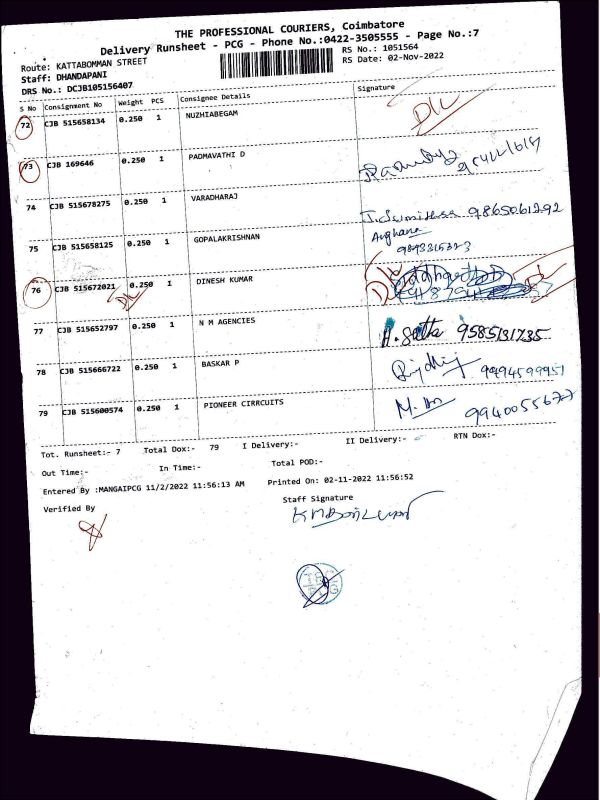 THE PROFESSIONAL COURIERS, Coimbatore
Delivery Runsheet - PCG - Phone No.:0422-3505555 - Page No.:7
Route: KATTABOMMAN STREET
RS No.: 1051564
Staff: DHANDAPANI
RS Date: 02-Nov-2022
DRS No.: DCJB105156407
S No Consignment No Weight PCS Consignee Details Signature
72 CJB 515658134 0.250 1 NUZHIABEGAM DL
73 CJB 169646 0.250 1 PADMAVATHI D
74 CJB 515678275 0.250 1 VARADHARAJ 9865061292
75 CJB 515658125 0.250 1 GOPALAKRISHNAN
76 CJB 515672021 0.250 1 DINESH KUMAR
DL
77 CJB 515652797 0.250 1 N M AGENCIES 9585131735
78 CJB 515666722 0.250 1 BASKAR P 9494599951
79 CJB 515600574 0.250 1 PIONEER CIRRCUITS 9940055677
Tot. Runsheet:- 7 Total Dox:- 79 I Delivery:- II Delivery:- RTN Dox:-
Out Time:- In Time:- Total POD:-
Entered By :MANGAIPCG 11/2/2022 11:56:13 AM Printed On: 02-11-2022 11:56:52
Verified By Staff Signature